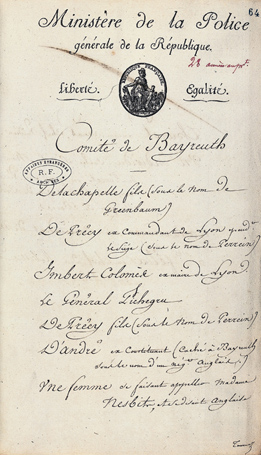 64
Ministère de la Police
générale de la République.
28
Liberté. Egalité.
Comité de Bayreuth
AFFAIRES ETRANGERES
R.F.
Delachapelle fils (sous le nom de
Greenbaum)
De Précy ex Commandant de Lyon
siège (sous le nom de Perrein)
Imbert Colomés ex maire de Lyon
Le Général Pichegru
De Précy fils (sous le nom de Perrein)
D'andré ex Constituant (caché à Bayreuth
sous le nom d'un négt Anglais)
Une femme se faisant appeller Madame
Nesbit, se disant anglaise